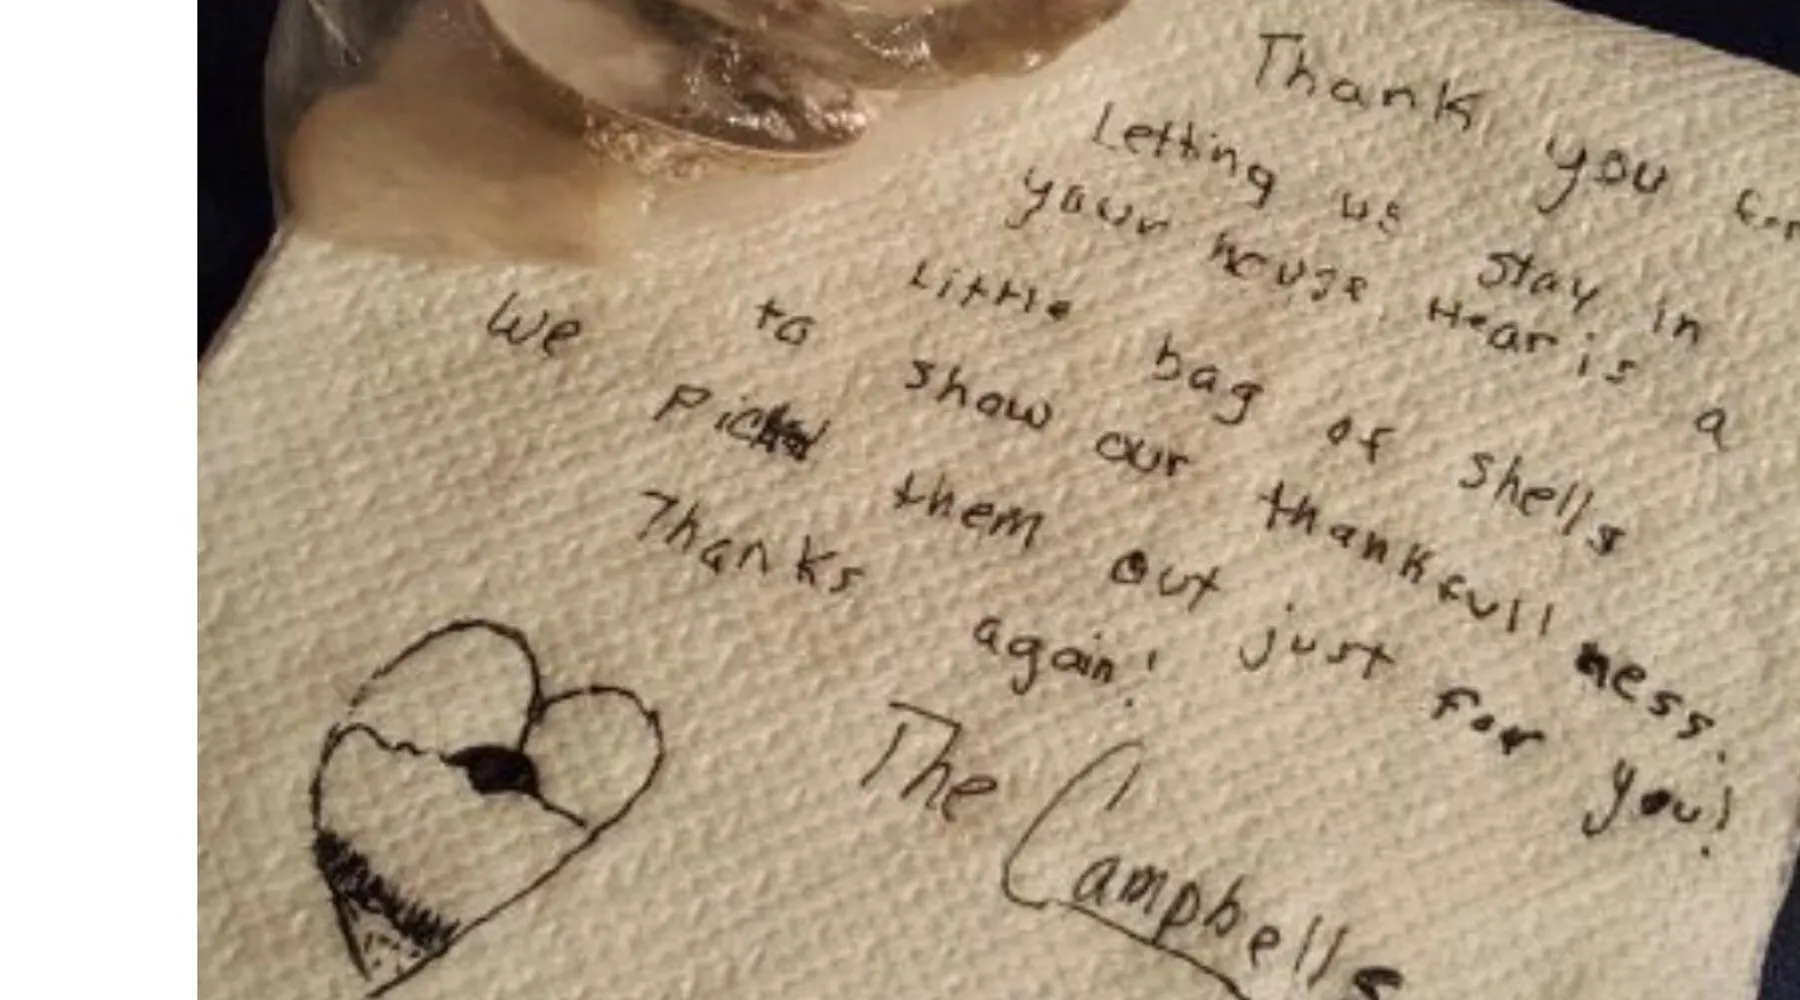 Thank you for
Letting us stay in
your house. Hear is a
Little bag of shells
to show our thankfull ness.
We Pickd them out just for you!
Thanks again!
The Campbells